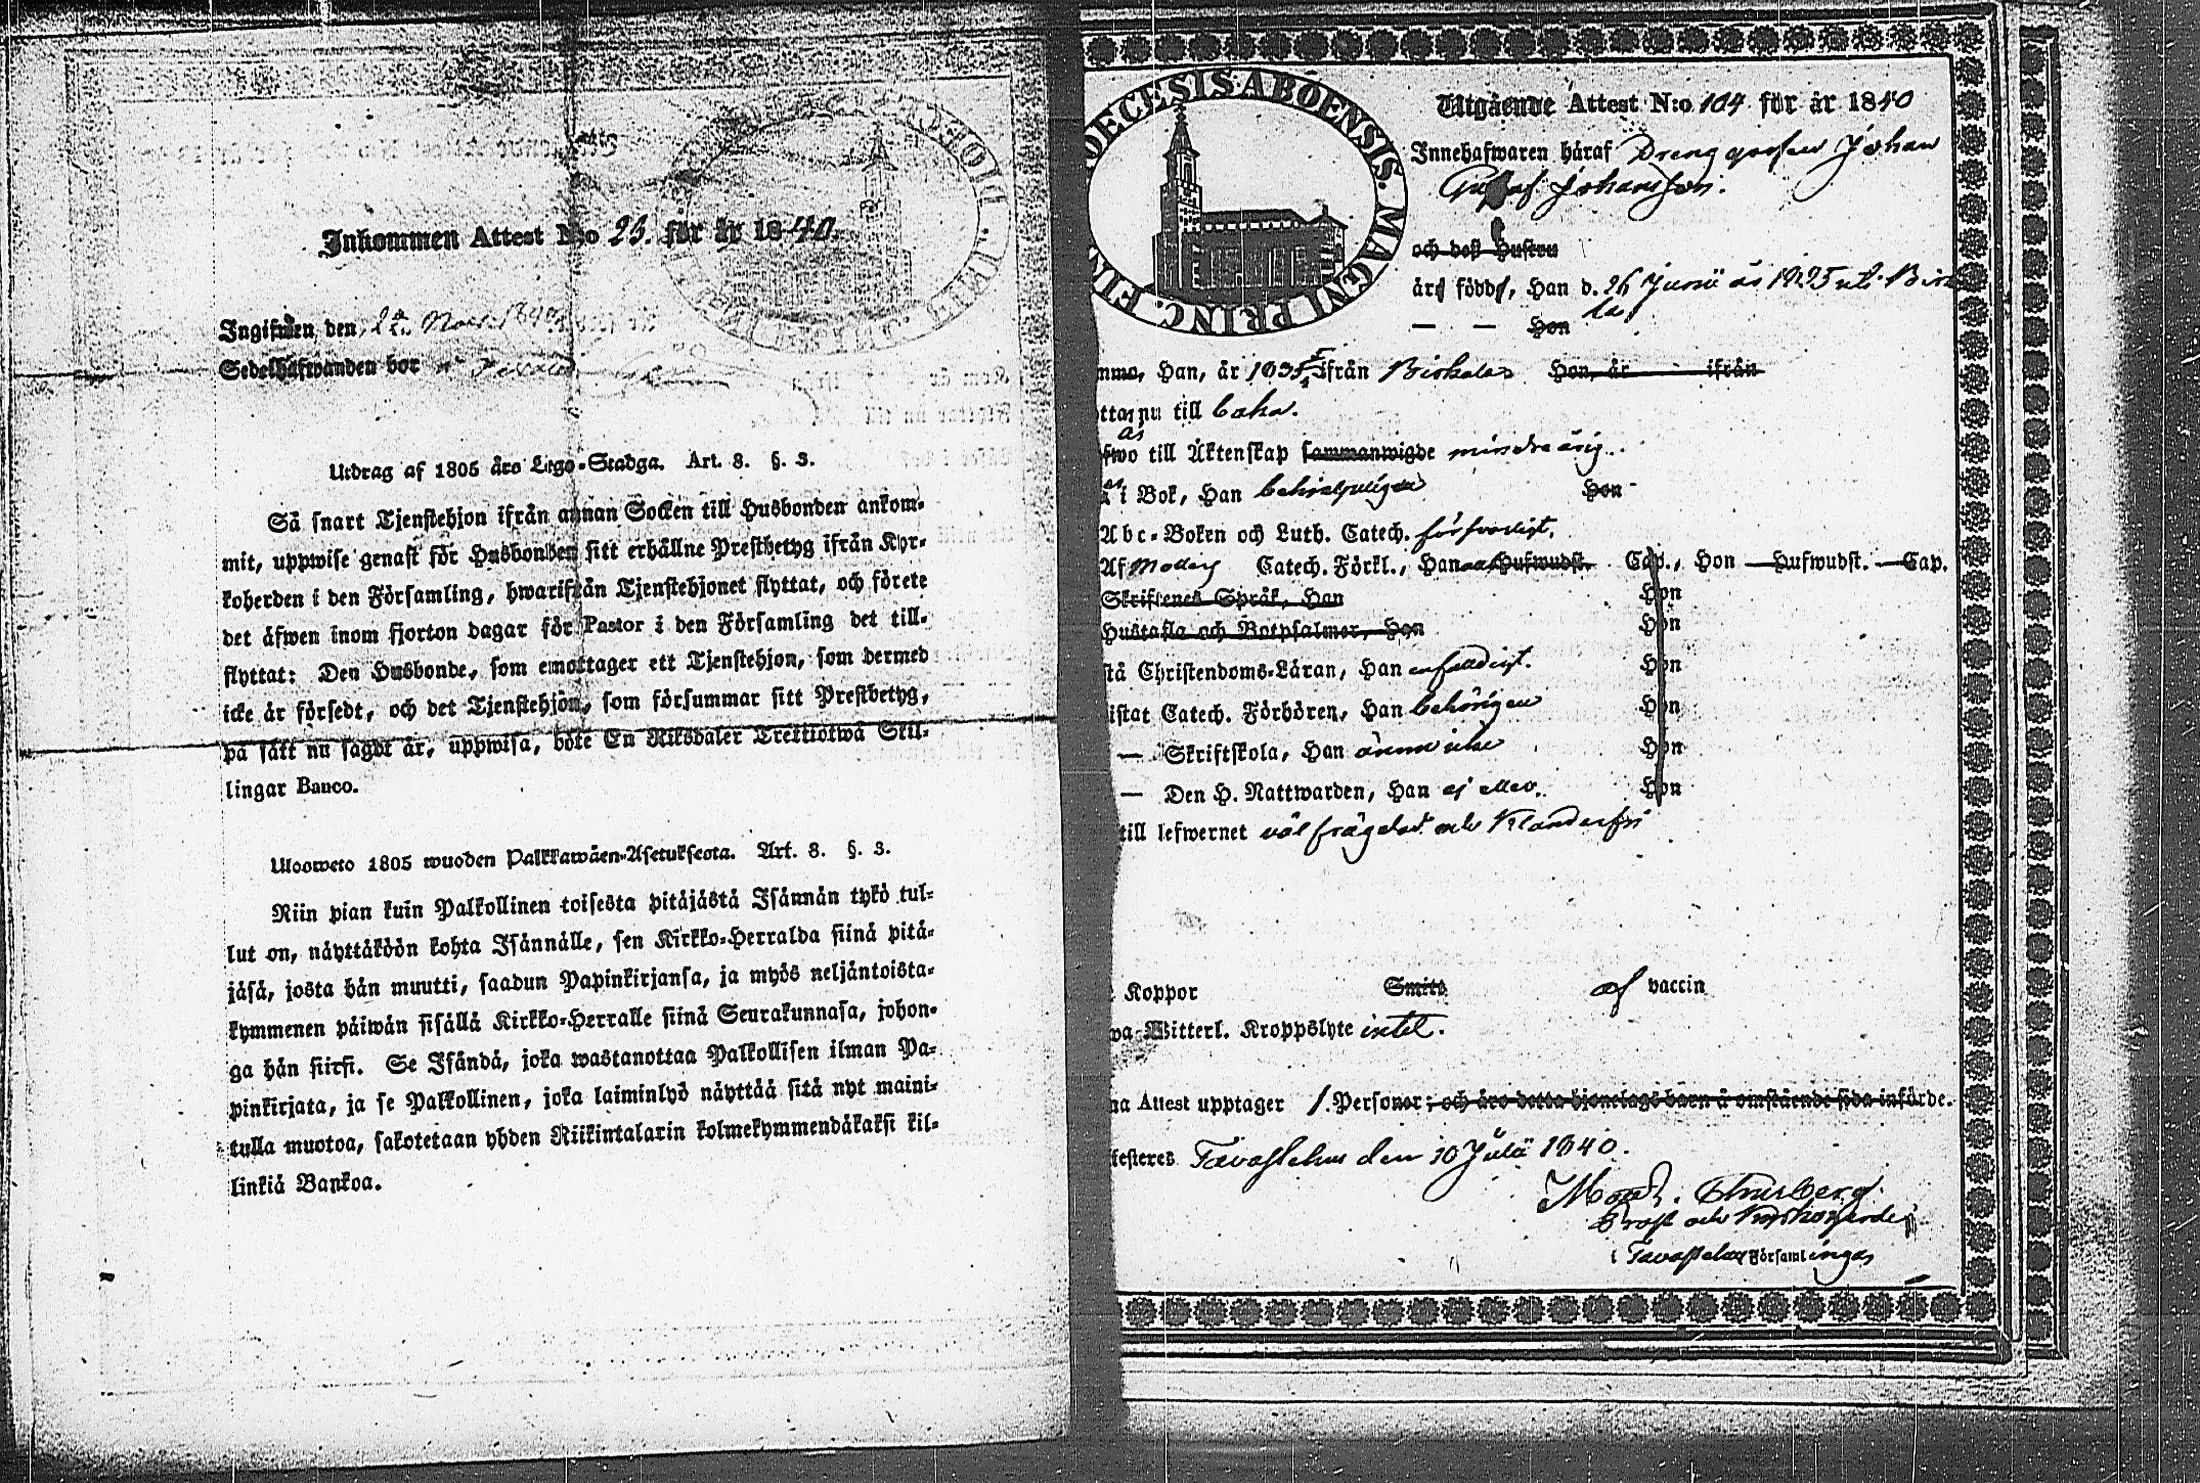 Inkommen Attest N:o 23. för år 1840.
Ingifwen den 2 Nov. 1840
Sedelhafwanden bor i
Utdrag af 1805 års Lego-Stadga. Art. 3. §. 3.
Så snart Tjenstehjon ifrån annan Socken till Husbonden ankom-
mit, uppwise genast för Husbonden sitt erhållne Prestbetyg ifrån Kyr-
koherden i den Församling, hwarifrån Tjenstehjonet flyttat, och förete
det äfwen inom fjorton dagar för Pastor i den Församling det till-
flyttat: Den Husbonde, som emottager ett Tjenstehjon, som dermed
icke är försedt, och det Tjenstehjon, som försummar sitt Prestbetyg,
på sätt nu sagdt är, uppwisa, böte En Riksdaler Trettiotwå Skil-
lingar Banco.
Ulosweto 1805 wuoden Palkkawäen-Asetuksesta. Art. 3. §. 3.
Niin pian kuin Palkollinen toisesta pitäjästä Isännän tykö tul-
lut on, näyttäköön kohta Isännälle, sen Kirkko-Herralda siinä pitä-
jäsä, josta hän muutti, saadun Papinkirjansa, ja myös neljäntoista-
kymmenen päiwän sisällä Kirkko-Herralle siinä Seurakunnasa, johon-
ga hän siirsi. Se Isändä, joka wastanottaa Palkollisen ilman Pa-
pinkirjata, ja se Palkollinen, joka laiminlyö näyttää sitä nyt maini-
tulla muotoa, sakotetaan yhden Riikintalarin kolmekymmendäkaksi kil-
linkiä Bankoa.
DIOECESIS ABOENSIS. MAGNI PRINC. FIN
Utgående Attest N:o 104 för år 1840
Innehafwaren häraf Dreng gossen Johan
Gustaf Johansson.
och dess Hustru
är född, Han d. 26 Junii år 1825 uti Birk
kala
— — Hon
mmo, Han, år 1835 ifrån Birkala Hon, år ifrån
ttar nu till baka.
fwo till Äktenskap sammanwigde minderårig.
i Bok, Han behielpeligen Hon
Abc-Boken och Luth. Catech. försvarligt.
Af Moderg Catech. Förkl., Han Hufwudst. Cap., Hon — Hufwudst. — Cap.
Skriftenes Språk, Han Hon
Hustafla och Botpsalmer, Han Hon
stå Christendoms-Läran, Han enfaldigt. Hon
istat Catech. Förhören, Han behörigen Hon
— Skriftskola, Han ännu icke Hon
— Den H. Nattwarden, Han ej eller. Hon
till lefwernet väl frägdad och klanderfri
Koppor Smitt af vaccin
wa Witterl. Kroppslyte intet.
na Attest upptager 1. Personer; och äro detta hjonelags barn å omstående sida införde.
testeres Tavastehus den 10 Julii 1840.
Prost och Kyrkoherde
i Tavastehus Församlingar